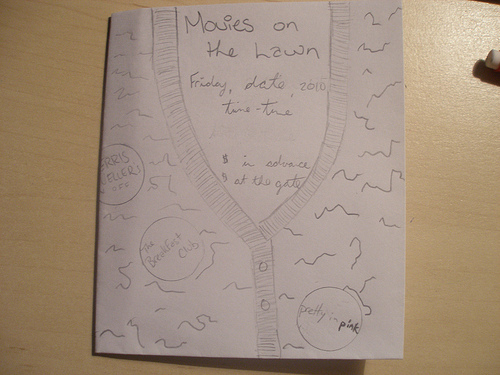 Movies on
the Lawn
Friday, date, 2010
time-time
$ in advance
$ at the gate
ERRIS
ELLERS
The
Breakfast
Club
pretty in
pink